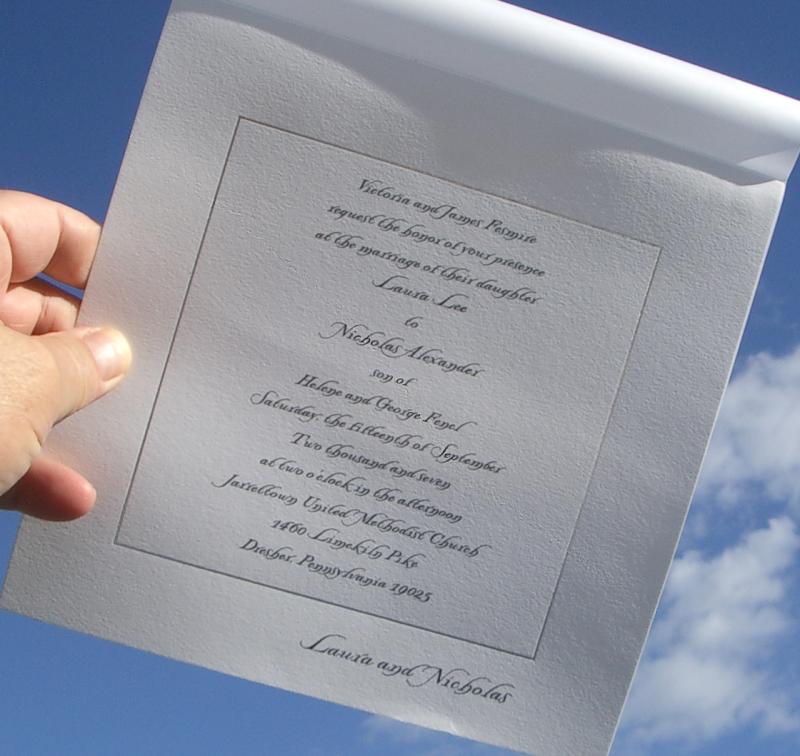 Victoria and James Pesmire
request the honor of your presence
at the marriage of their daughter
Laura Lee
to
Nicholas Alexander
son of
Helene and George Fenel
Saturday, the fifteenth of September
Two thousand and seven
at two o'clock in the afternoon
Jarrettown United Methodist Church
1460 Limekiln Pike
Dresher, Pennsylvania 19025
Laura and Nicholas